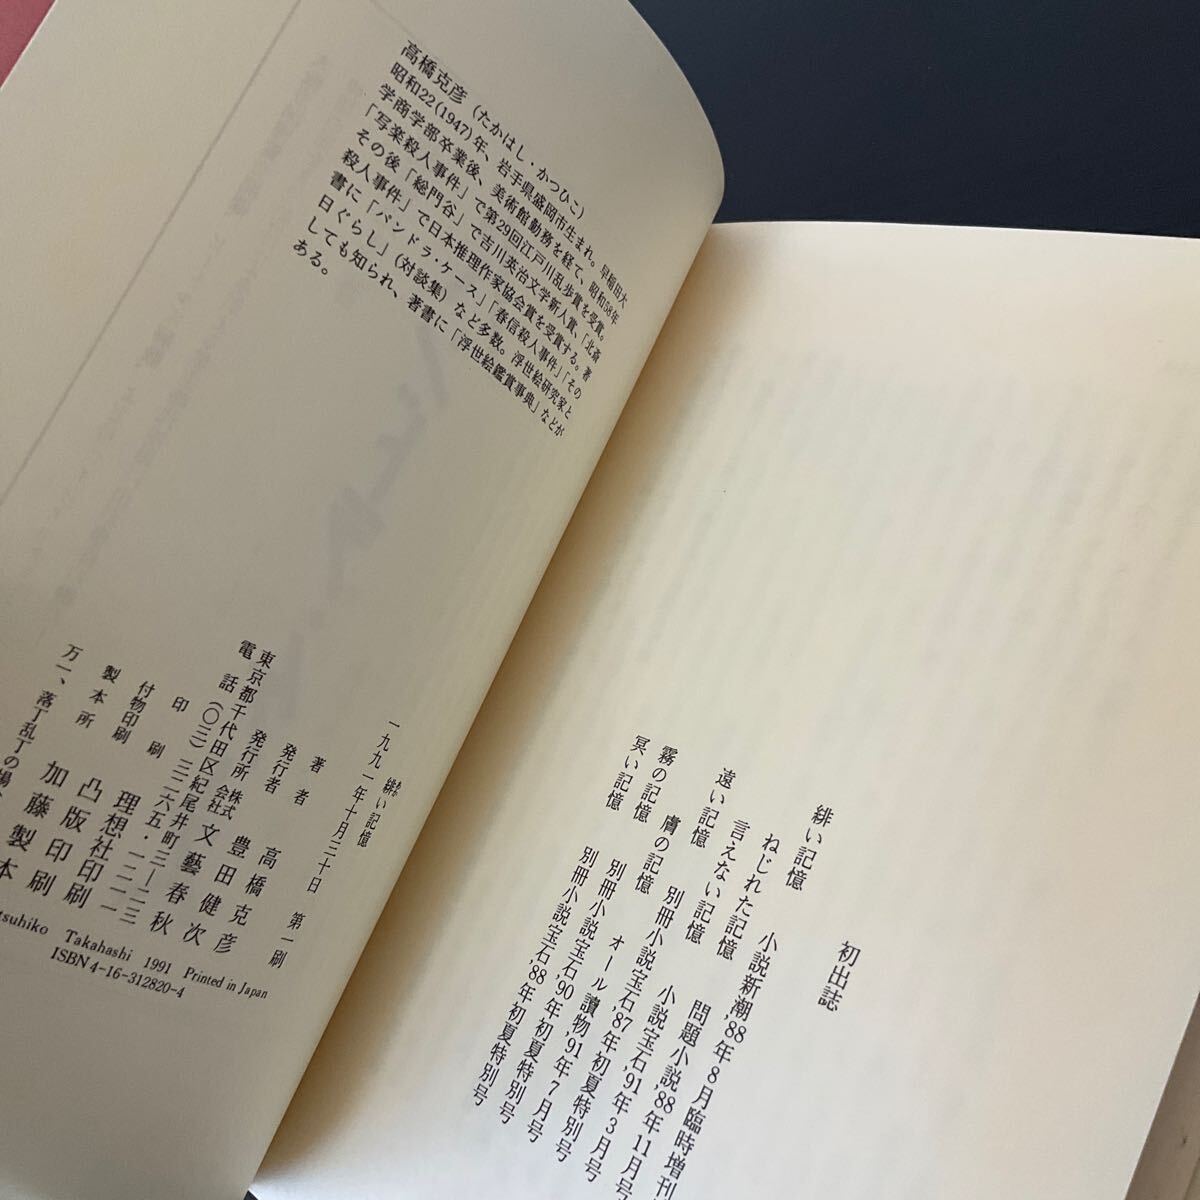 高橋克彦(たかはし・かつひこ)
昭和22(1947)年、岩手県盛岡市生まれ。早稲田大
学商学部卒業後、美術館勤務を経て、昭和58年
「写楽殺人事件」で第29回江戸川乱歩賞を受賞。
その後「総門谷」で吉川英治文学新人賞、「北斎
殺人事件」で日本推理作家協会賞を受賞する。著
書に「パンドラ・ケース」「春信殺人事件」「その
日ぐらし」(対談集)など多数。浮世絵研究家と
しても知られ、著書に「浮世絵鑑賞事典」などが
ある。
緋い記憶
あか
一九九一年十月三十日 第一刷
著者 高橋克彦
発行者 豊田健次
発行所 株式会社 文藝春秋
東京都千代田区紀尾井町三―二三
電話(〇三)三二六五・一二一一
印刷 理想社
付物印刷 凸版印刷
製本所 加藤製本
万一、落丁乱丁の場合
Takahashi 1991 Printed in Japan
ISBN4-16-312820-4
初出誌
緋い記憶 小説新潮'88年8月臨時増刊
ねじれた記憶 問題小説'88年11月号
言えない記憶 小説宝石'91年3月号
遠い記憶 別冊小説宝石'87年初夏特別号
膚の記憶 オール讀物'91年7月号
霧の記憶 別冊小説宝石'90年初夏特別号
冥い記憶 別冊小説宝石'88年初夏特別号